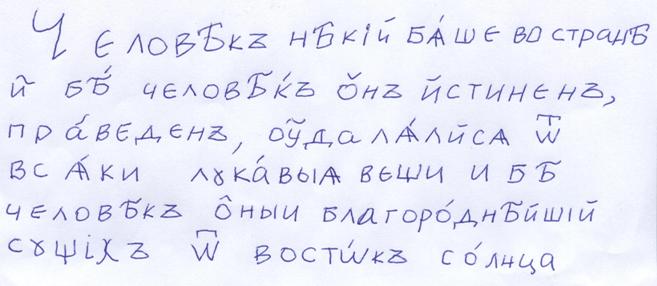 Человѣкъ нѣкій бѧ́ше во странѣ
и҆ бѣ́ человѣ́къ о҆́нъ и҆стиненъ,
пра́веденъ, ᲂу҆далѧ́ѧйсѧ ѿ
всѧ́ки лꙋка́выѧ вєщи и бѣ
человѣкъ о̑ный благоро́днѣйшій
сꙋщіхъ ѿ восто́къ со́лнца